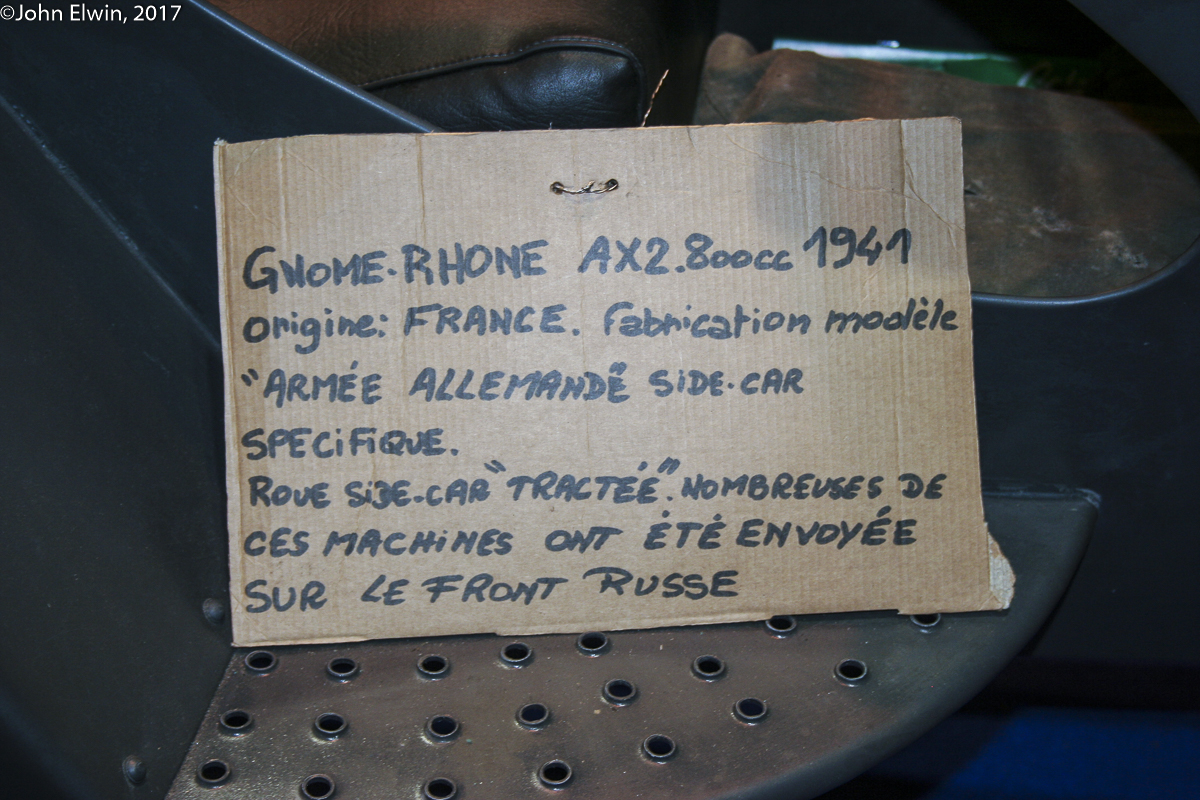 ©John Elwin, 2017
GNOME.RHONE AX2.800cc 1941
origine: FRANCE. Fabrication modèle
"ARMÉE ALLEMANDE" SiDE.CAR
SPECiFiQUE.
ROUE SiDE.CAR "TRACTÉE". NOMBREUSES DE
CES MACHiNES ONT ÉTÉ ENVOYÉE
SUR LE FRONT RUSSE